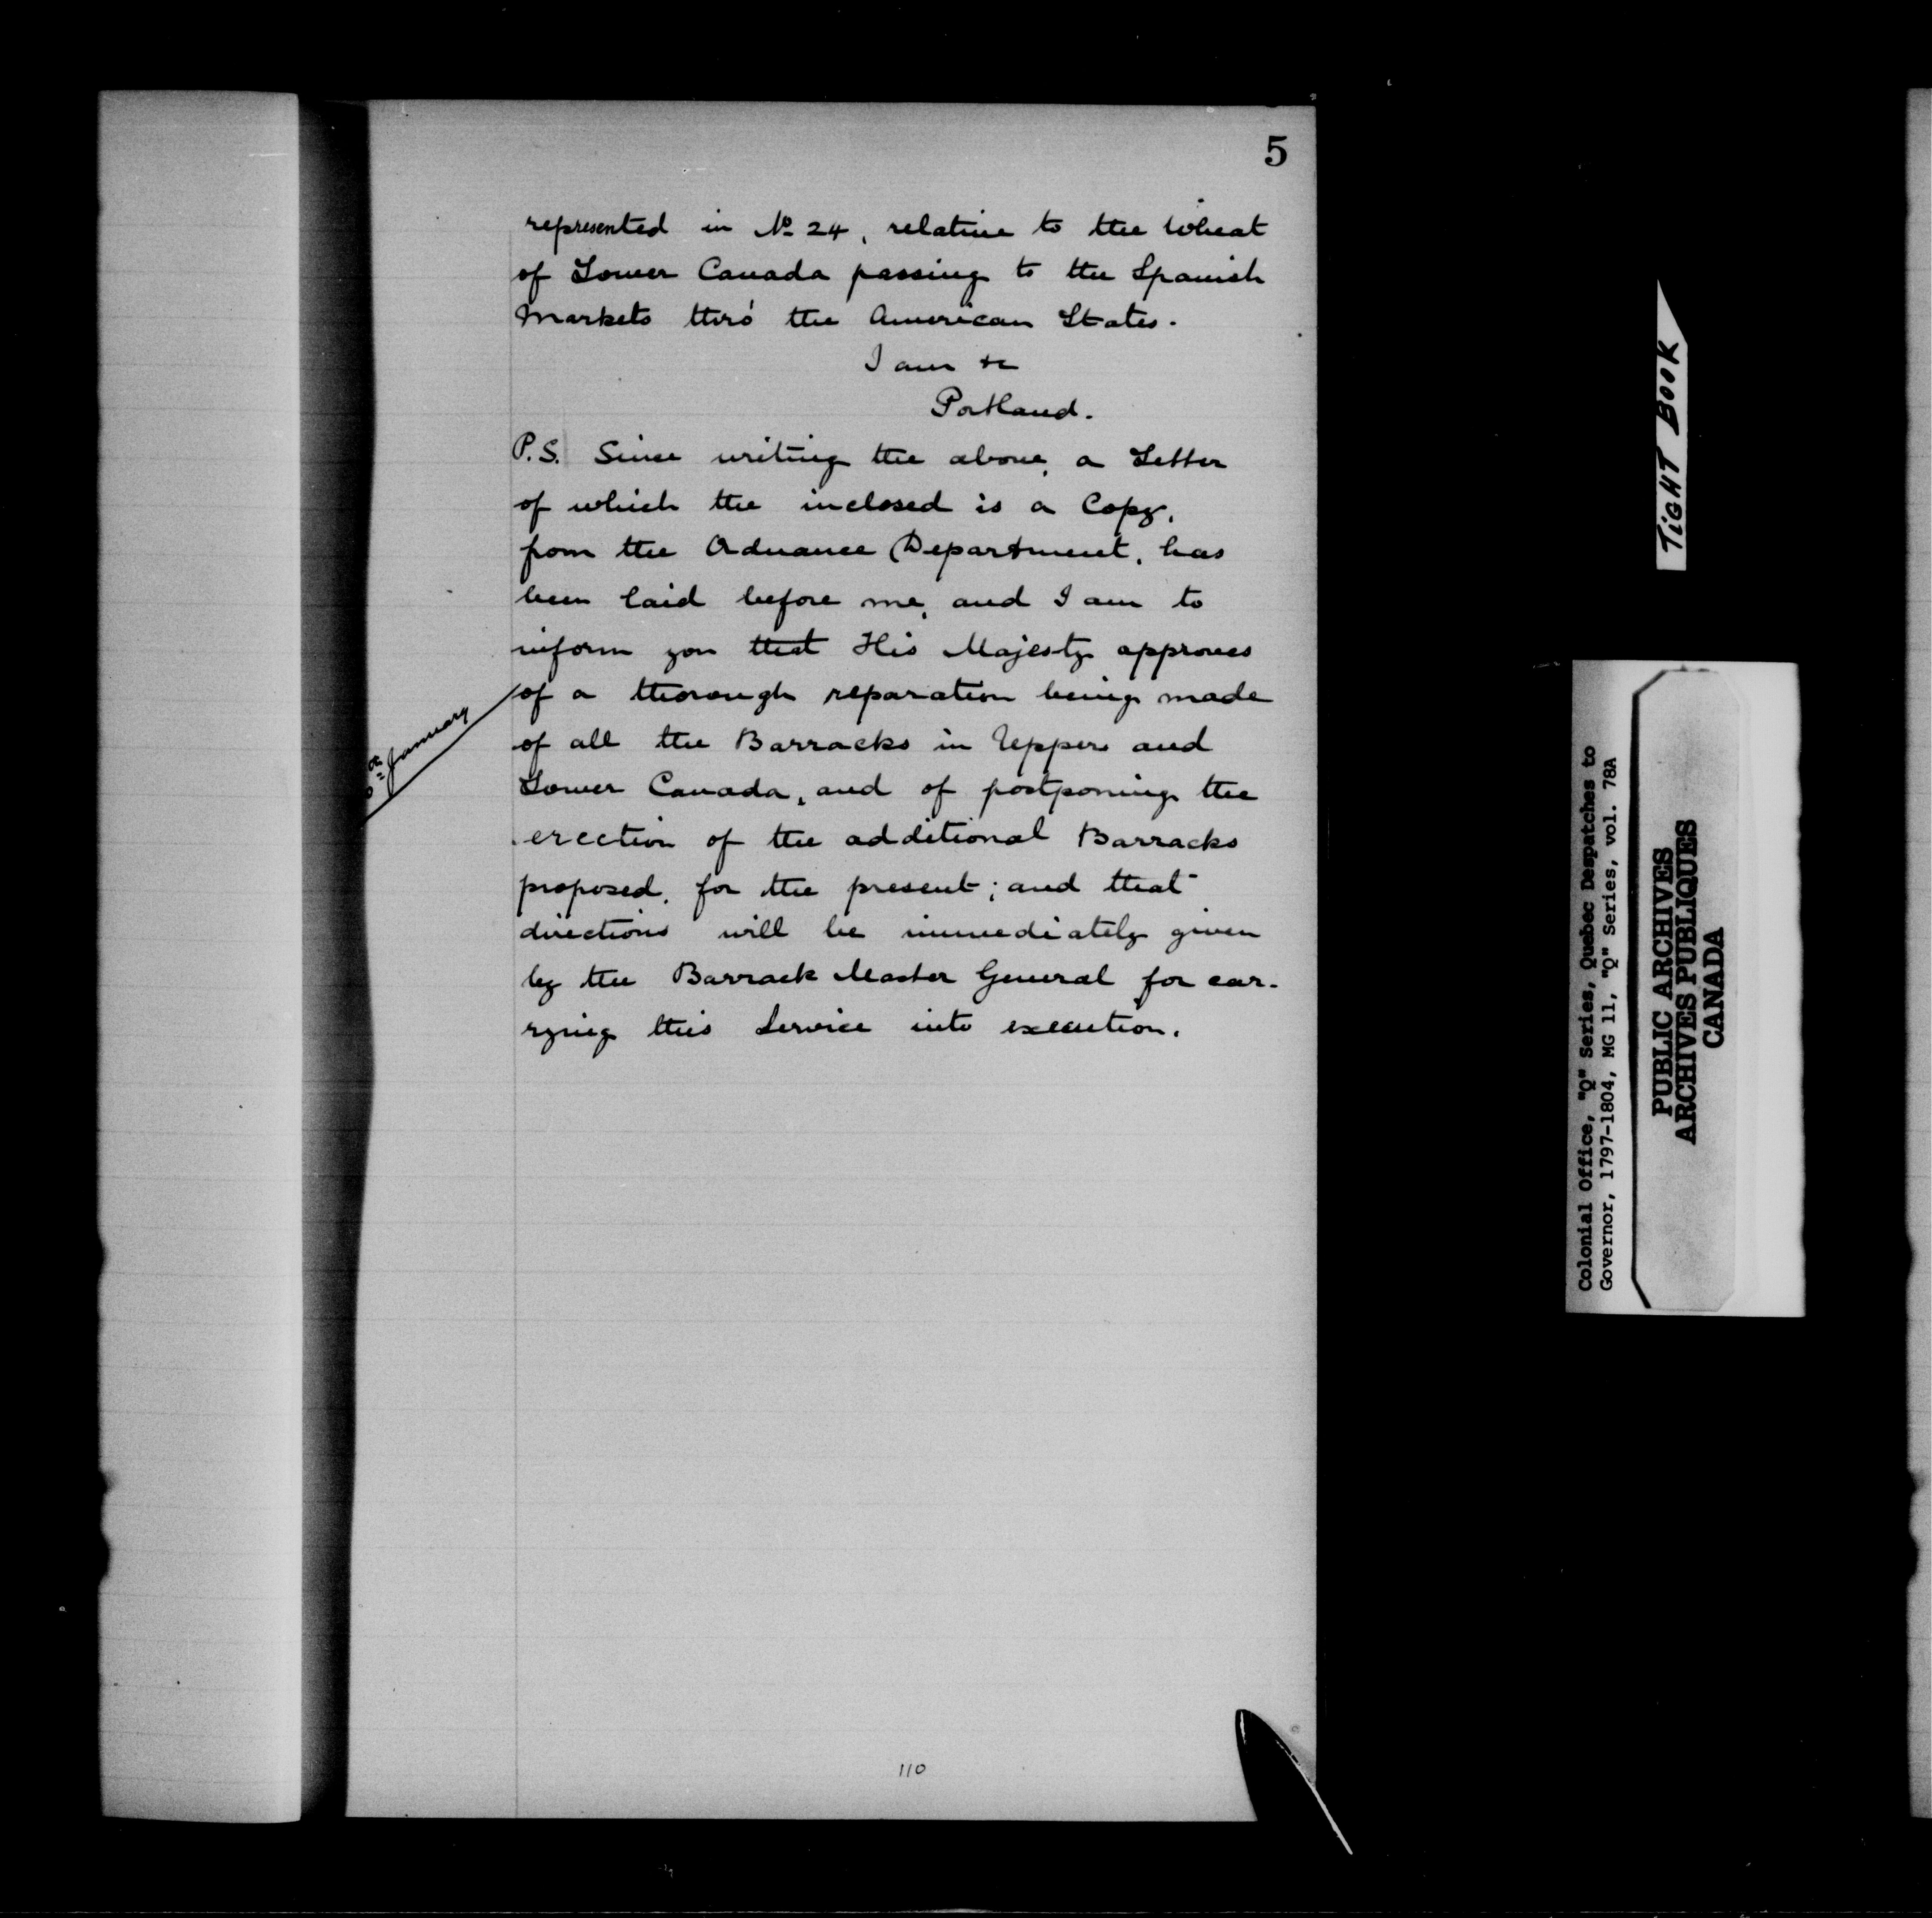 5
represented in No 24, relative to the Wheat
of Lower Canada passing to the Spanish
Markets thro' the American States.
I am &c
Portland.
P.S. Since writing the above, a Letter
of which the inclosed is a Copy,
from the Ordnance Department, has
been laid before me, and I am to
inform you that His Majesty approves
of a thorough reparation being made
of all the Barracks in Upper and
Lower Canada, and of postponing the
erection of the additional Barracks
proposed, for the present; and that
directions will be immediately given
by the Barrack Master General for car-
rying this Service into execution.
January
110
TIGHT BOOK
Colonial Office, "Q" Series, Quebec Despatches to
Governor, 1797-1804, MG 11, "Q" Series, vol. 78A
PUBLIC ARCHIVES
ARCHIVES PUBLIQUES
CANADA